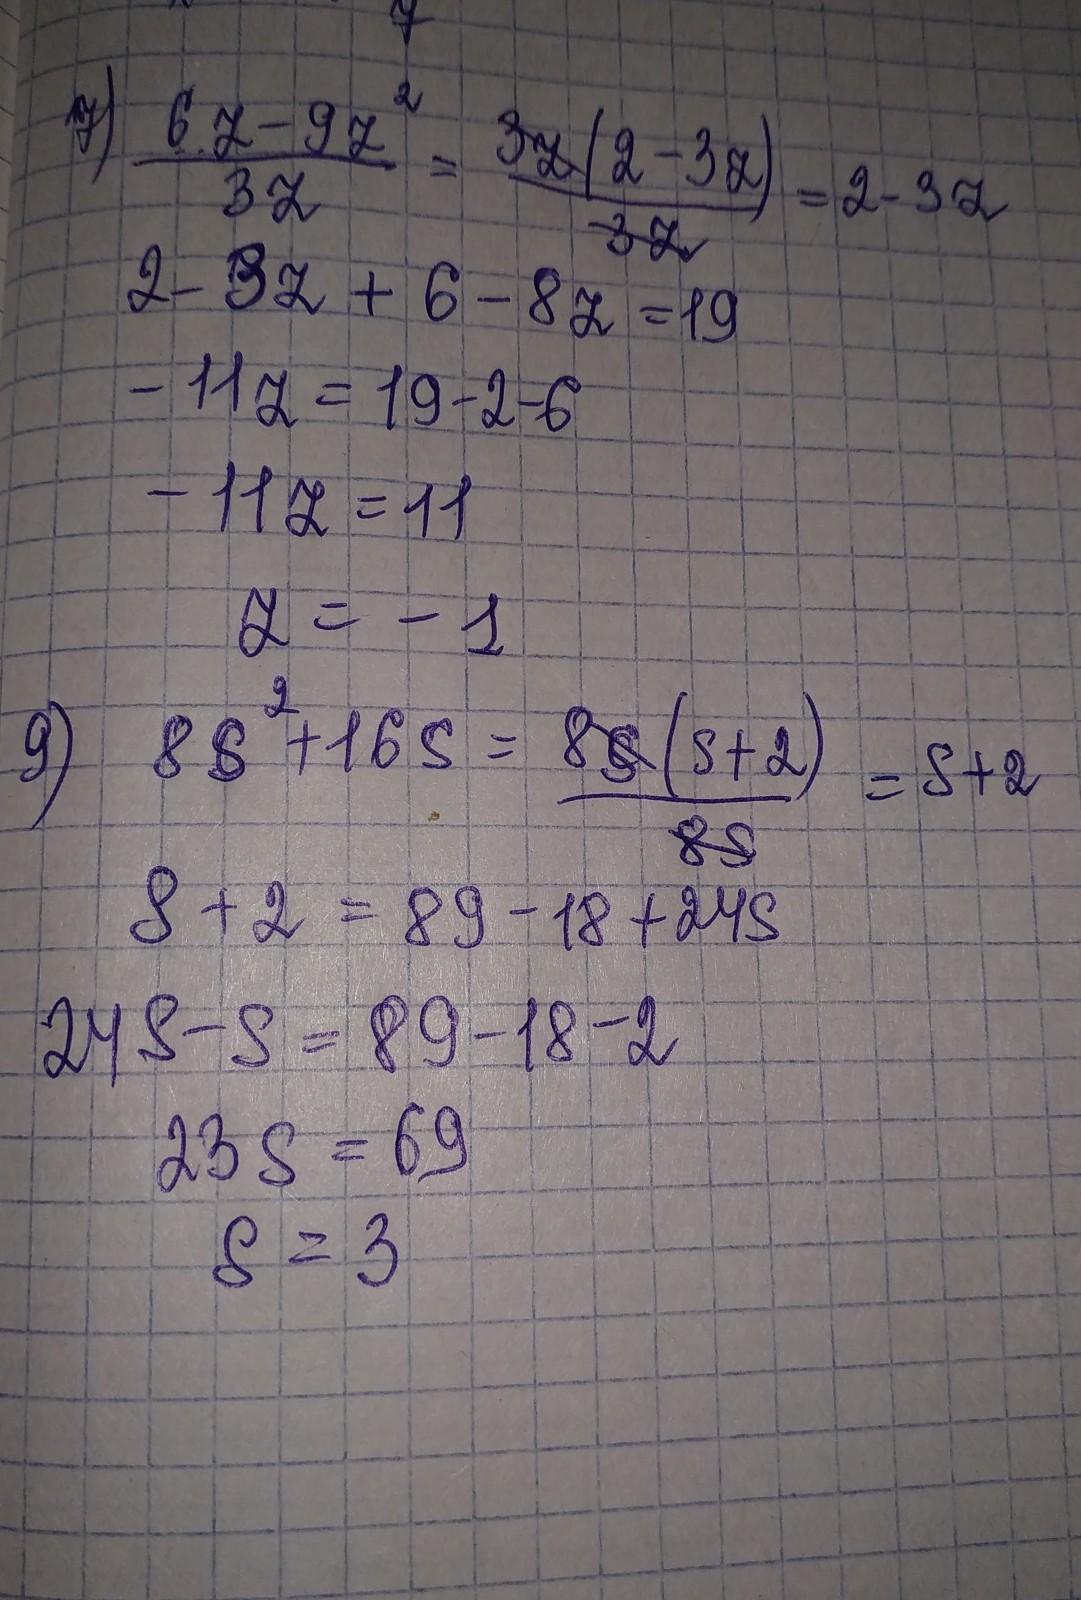 7) 6z-9z²/3z = 3z(2-3z)/3z = 2-3z
2-3z + 6-8z = 19
-11z = 19-2-6
-11z = 11
z = -1
9) 8s²+16s = 8s(s+2)/8s = s+2
s+2 = 89-18+24s
24s-s = 89-18-2
23s = 69
s = 3